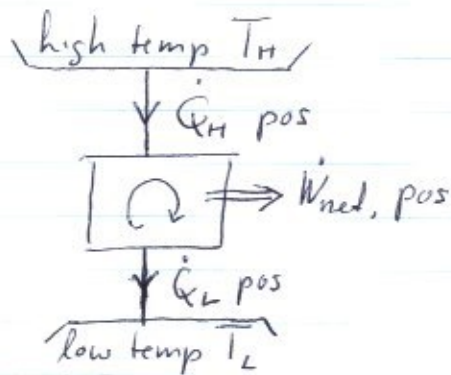 high temp T_H
Q̇_H pos
Ẇ_net, pos
Q̇_L pos
low temp T_L